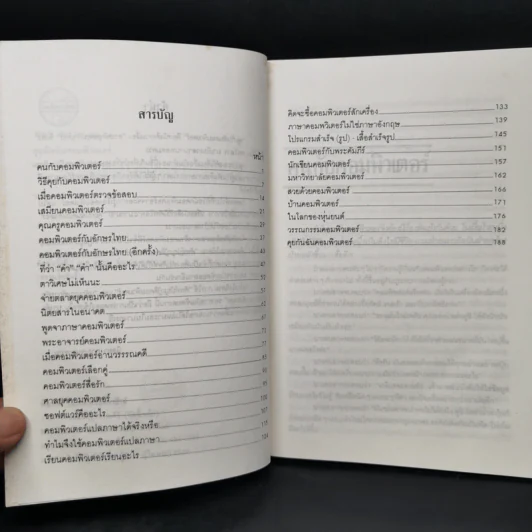 สารบัญ
หน้า
คนกับคอมพิวเตอร์
วิธีคุยกับคอมพิวเตอร์
เมื่อคอมพิวเตอร์ตรวจข้อสอบ 14
เสมียนคอมพิวเตอร์ 21
คุณครูคอมพิวเตอร์
คอมพิวเตอร์กับอักษรไทย
คอมพิวเตอร์กับอักษรไทย (อีกครั้ง)
ที่ว่า "คำ" "คำ" นั้นคืออะไร
ตาวิเศษไม่เห็นนะ
จ่ายตลาดยุคคอมพิวเตอร์
นิตยสารในอนาคต
พูดจาภาษาคอมพิวเตอร์
พระอาจารย์คอมพิวเตอร์
เมื่อคอมพิวเตอร์อ่านวรรณคดี
คอมพิวเตอร์เลือกคู่
คอมพิวเตอร์สื่อรัก
ศาลยุคคอมพิวเตอร์
ซอฟต์แวร์คืออะไร 107
คอมพิวเตอร์แปลภาษาได้จริงหรือ
ทำไมจึงใช้คอมพิวเตอร์แปลภาษา
เรียนคอมพิวเตอร์เรียนอะไร
คิดจะซื้อคอมพิวเตอร์สักเครื่อง 133
ภาษาคอมพิวเตอร์ไม่ใช่ภาษาอังกฤษ 139
โปรแกรมสำเร็จ (รูป) - เสื้อสำเร็จรูป 145
คอมพิวเตอร์กับพระคัมภีร์ 151
นักเขียนคอมพิวเตอร์ 157
มหาวิทยาลัยคอมพิวเตอร์ 162
สวยด้วยคอมพิวเตอร์ 166
บ้านคอมพิวเตอร์ 171
ในโลกของหุ่นยนต์ 176
วรรณกรรมคอมพิวเตอร์ 182
คุยกันฉันคอมพิวเตอร์ 188